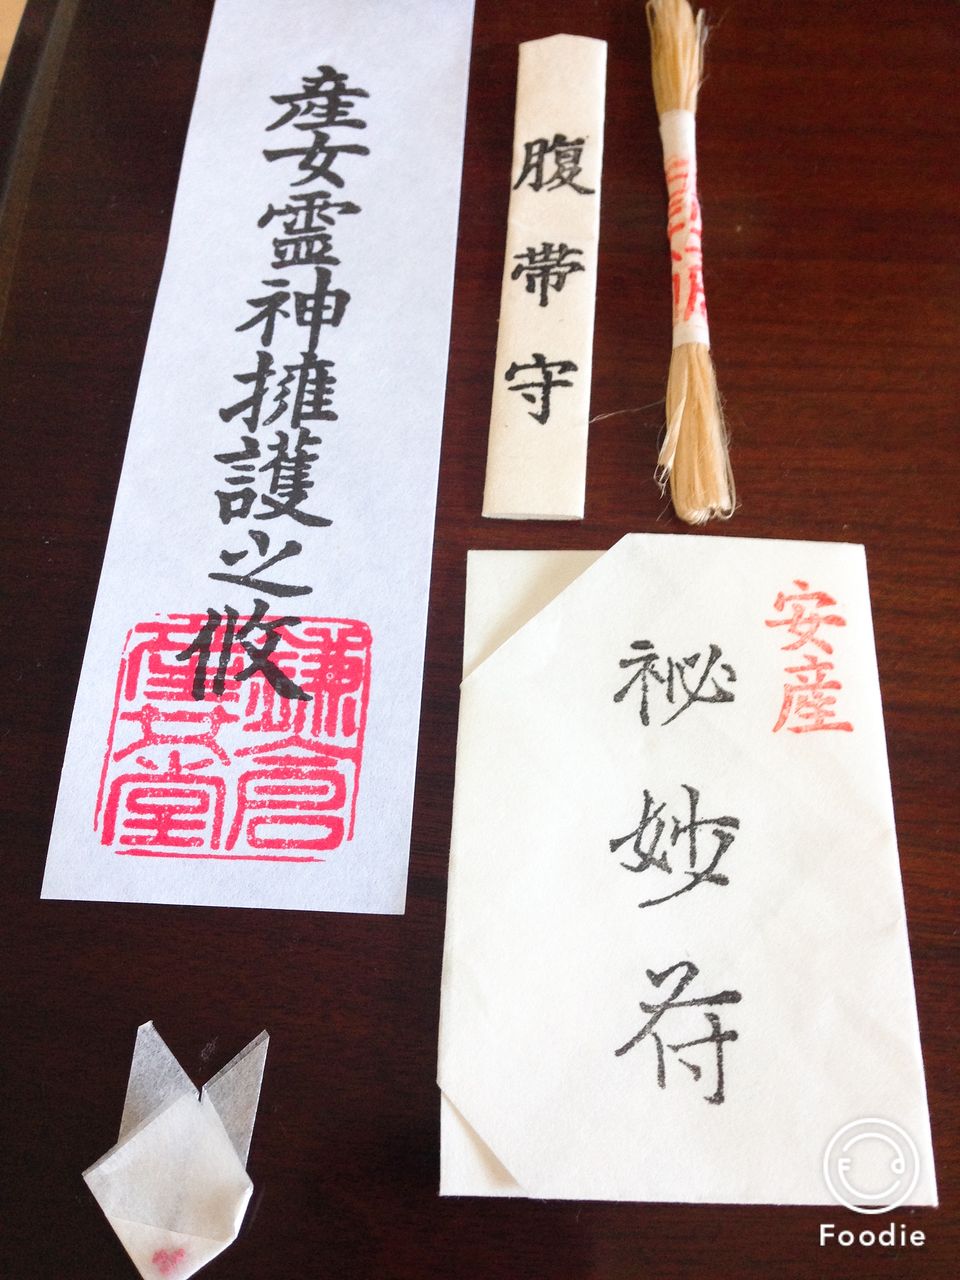 産女霊神擁護之攸
鎌倉
産女堂
腹帯守
安産
秘妙符
Foodie